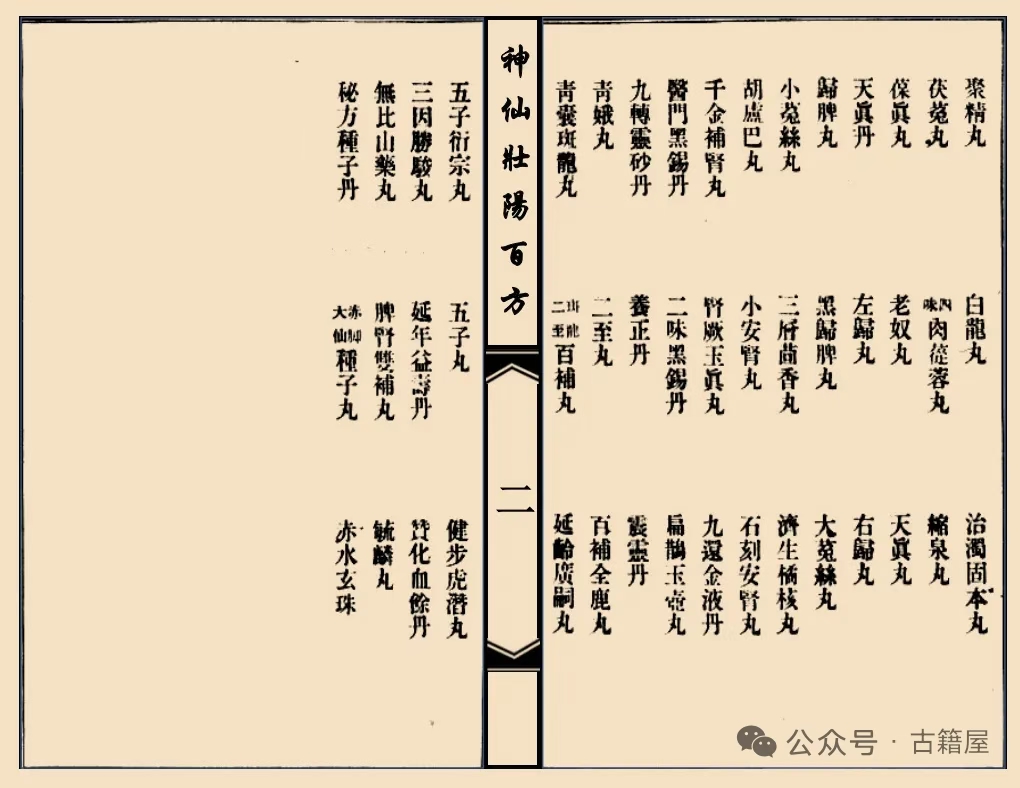 聚精丸 白龍丸 治濁固本丸
茯菟丸 四味肉蓯蓉丸 縮泉丸
葆眞丸 老奴丸 天眞丸
天眞丹 左歸丸 右歸丸
歸脾丸 黑歸脾丸 大菟絲丸
小菟絲丸 三層茴香丸 濟生橘核丸
胡盧巴丸 小安腎丸 石刻安腎丸
千金補腎丸 腎厥玉眞丸 九還金液丹
醫門黑錫丹 二味黑錫丹 扁鵲玉壺丸
九轉靈砂丹 養正丹 震靈丹
靑娥丸 二至丸 百補全鹿丸
靑囊斑龍丸 龍二至百補丸 延齡廣嗣丸
神仙壯陽百方
二
五子衍宗丸 五子丸 健步虎潛丸
三因勝駿丸 延年益壽丹 贊化血餘丹
無比山藥丸 脾腎雙補丸 毓麟丸
秘方種子丹 赤脚大仙種子丸 赤水玄珠
公众号 · 古籍屋